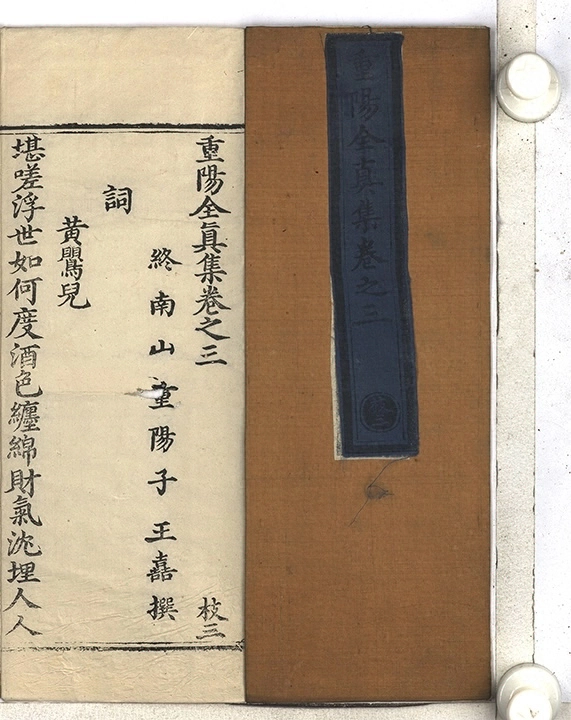 重陽全真集卷之三
重陽全真集卷之三
枝三
終南山重陽子王嚞撰
詞
黃鸎兒
堪嗟浮世如何度酒色纏綿財氣沈埋人人